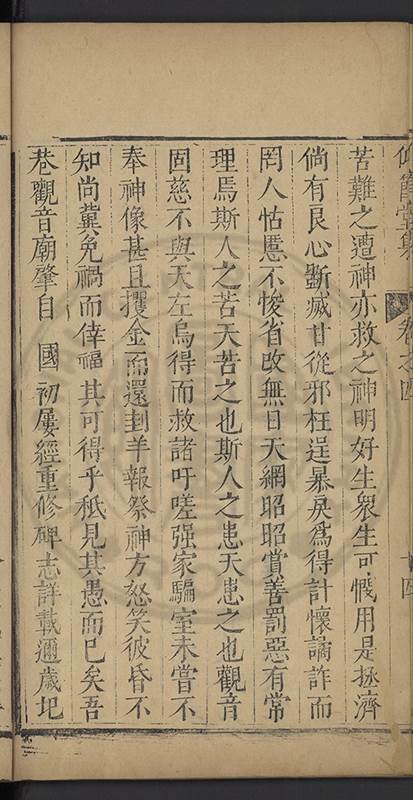 苦難之遭神亦救之神明好生衆生可慨用是拯濟
倘有良心斷滅甘從邪枉逞暴戾爲得計懷譎詐而
罔人怙慝不悛省改無日天網昭昭賞善罰惡有常
理焉斯人之苦天苦之也斯人之患天患之也觀音
固慈不與天左烏得而救諸吁嗟强家騙室未嘗不
奉神像甚且攫金而還刲羊報祭神方怒笑彼昏不
知尚冀免禍而倖福其可得乎秪見其愚而已矣吾
巷觀音廟肇自 國初屢經重修碑志詳載邇歲圮
卷之四